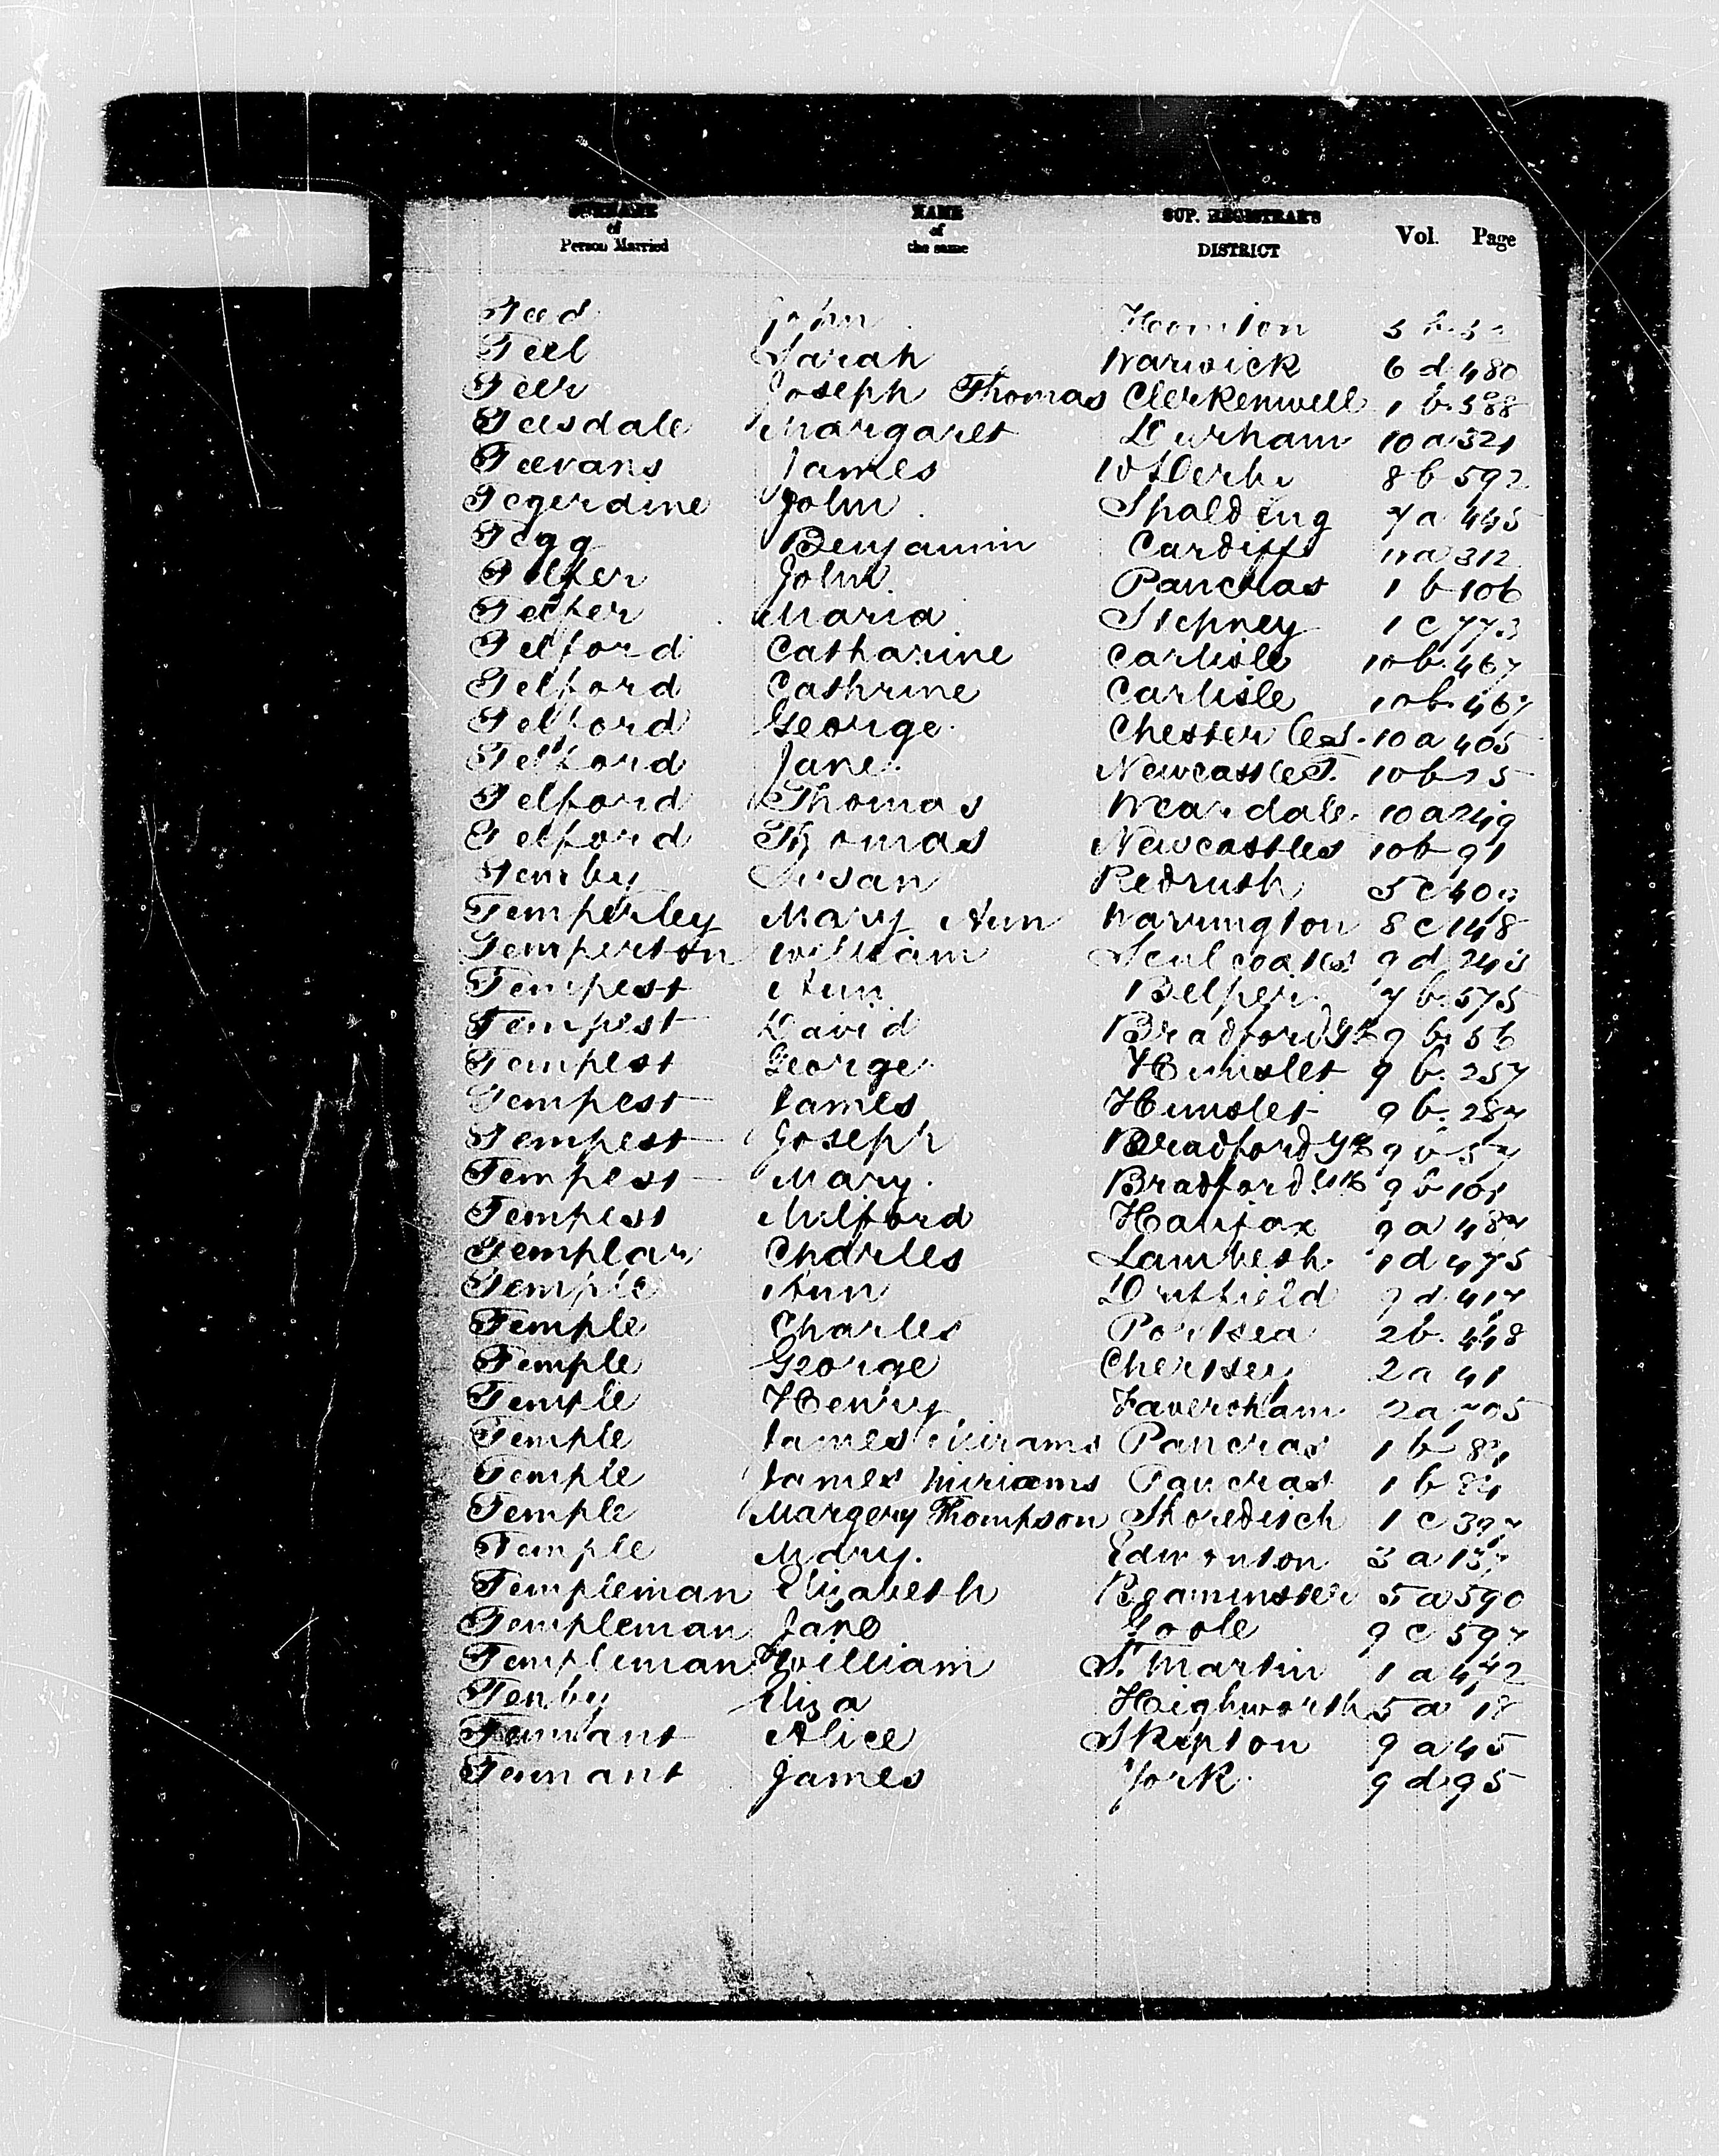 SURNAME NAME SUP. REGISTRAR'S
of of Vol. Page
Person Married the same DISTRICT
Teed John Honiton 5 b
Teel Sarah Warwick 6 d 480
Teer Joseph Thomas Clerkenwell 1 b 588
Teesdale Margaret Durham 10 a 321
Teevans James W Derby 8 b 592
Tegerdine John Spalding 7 a 445
Tegg Benjamin Cardiff 11 a 312
Telfer John Pancras 1 b 106
Telfer Maria Stepney 1 c 773
Telford Catharine Carlisle 10 b 467
Telford Cathrine Carlisle 10 b 467
Telford George Chester le S. 10 a 405
Telford Jane Newcastle T. 10 b
Telford Thomas Weardale 10 a 249
Telford Thomas Newcastle 10 b 91
Temby Susan Redruth 5 c
Temperley Mary Ann Warrington 8 c 148
Temperton William Sculcoates 9 d
Tempest Ann Belper 7 b 575
Tempest David Bradford Yk 9 b 56
Tempest George Hunslet 9 b 257
Tempest James Hunslet 9 b 287
Tempest Joseph Bradford Yk 9 b 57
Tempest Mary Bradford Yk 9 b 101
Tempest Milford Halifax 9 a 487
Templar Charles Lambeth 1 d 475
Temple Ann Driffield 9 d 417
Temple Charles Portsea 2 b 448
Temple George Chertsey 2 a 41
Temple Henry Faversham 2 a 705
Temple James Pancras 1 b
Temple James Miriams Pancras 1 b
Temple Margery Thompson Shoreditch 1 c 397
Temple Mary Edmonton 3 a 137
Templeman Elizabeth Beaminster 5 a 590
Templeman Jane Goole 9 c 597
Templeman William St Martin 1 a 442
Tenby Eliza Highworth 5 a 18
Tennant Alice Skipton 9 a 45
Tennant James York 9 d 95